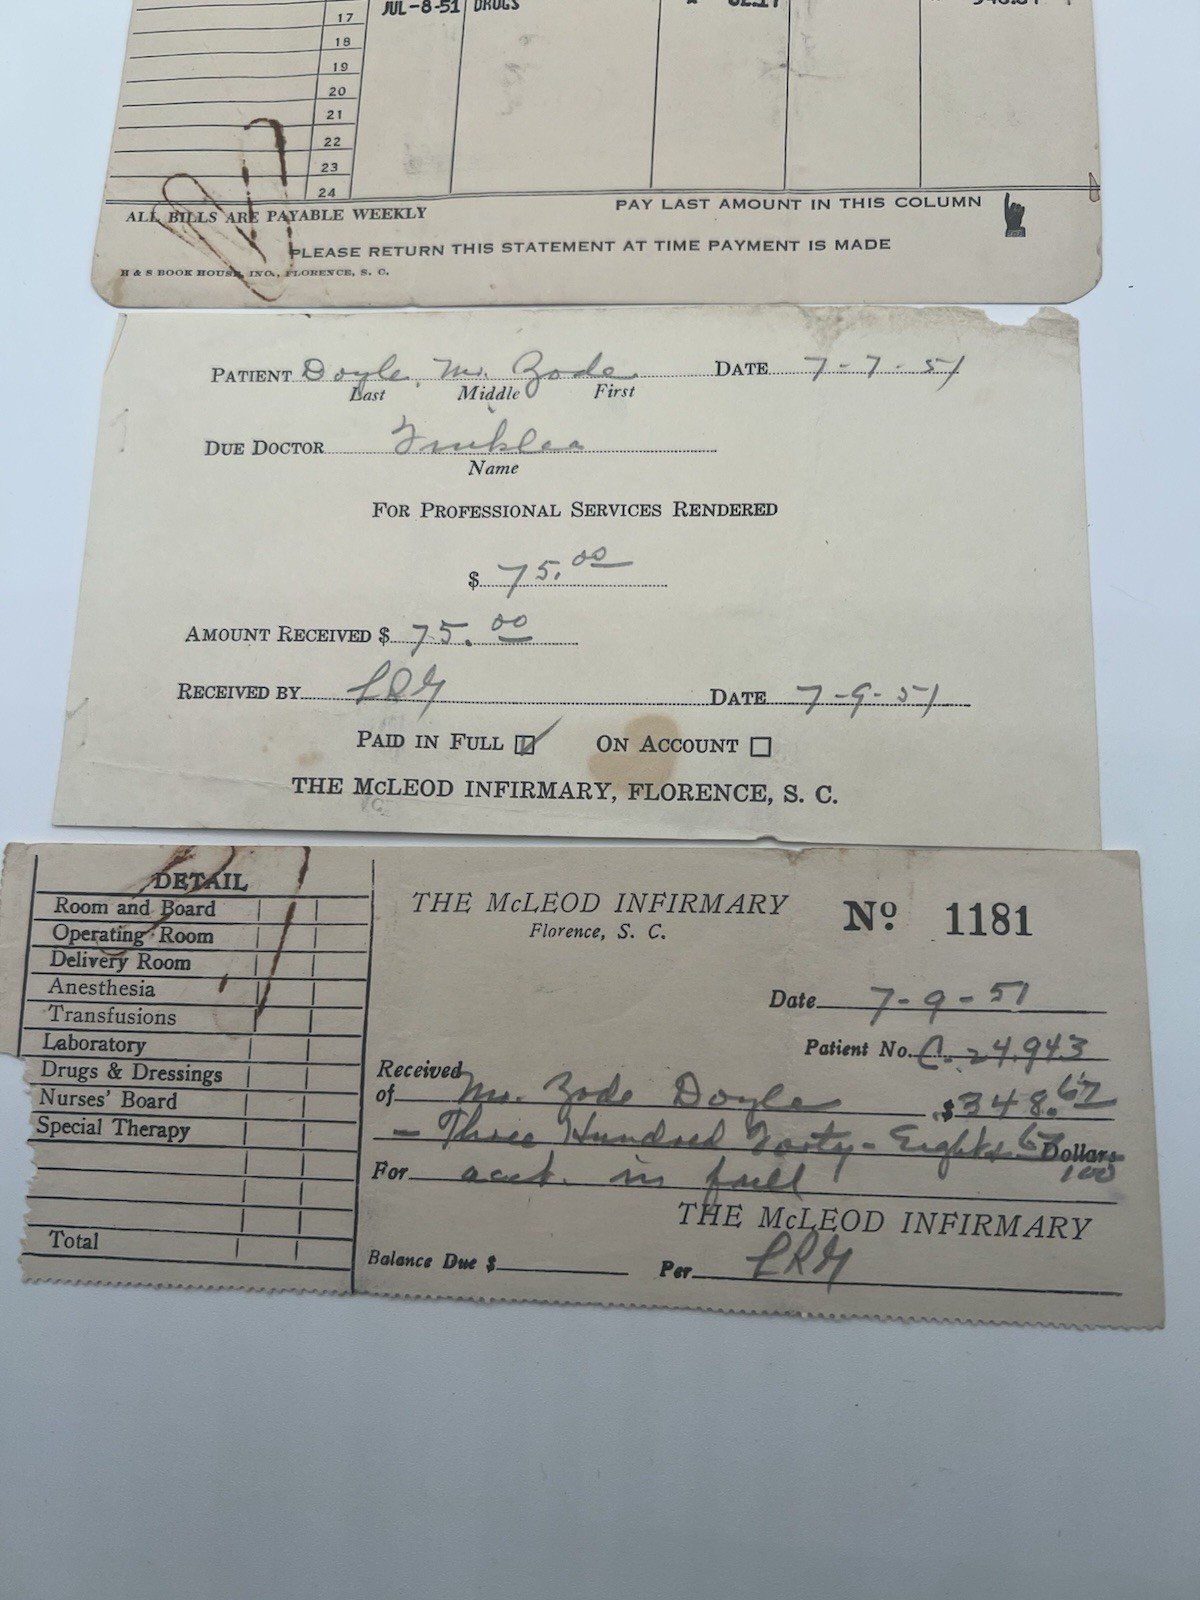 17 JUL-8-51 DRUGS
18
19
20
21
22
23
24
ALL BILLS ARE PAYABLE WEEKLY PAY LAST AMOUNT IN THIS COLUMN
PLEASE RETURN THIS STATEMENT AT TIME PAYMENT IS MADE
H & S BOOK HOUSE, INC., FLORENCE, S. C.
PATIENT Doyle, Mr. Zode DATE 7-7-51
Last Middle First
DUE DOCTOR Finklea
Name
FOR PROFESSIONAL SERVICES RENDERED
$ 75.00
AMOUNT RECEIVED $ 75.00
RECEIVED BY LRG DATE 7-9-51
PAID IN FULL ON ACCOUNT
THE McLEOD INFIRMARY, FLORENCE, S. C.
DETAIL
Room and Board
Operating Room
Delivery Room
Anesthesia
Transfusions
Laboratory
Drugs & Dressings
Nurses' Board
Special Therapy
Total
THE McLEOD INFIRMARY No. 1181
Florence, S. C.
Date 7-9-51
Patient No. C. 24,943
Received
of Mr. Zode Doyle $348.67
- Three Hundred Forty-Eight & 67/100 Dollars
For acct. in full
THE McLEOD INFIRMARY
Balance Due $ Per LRG